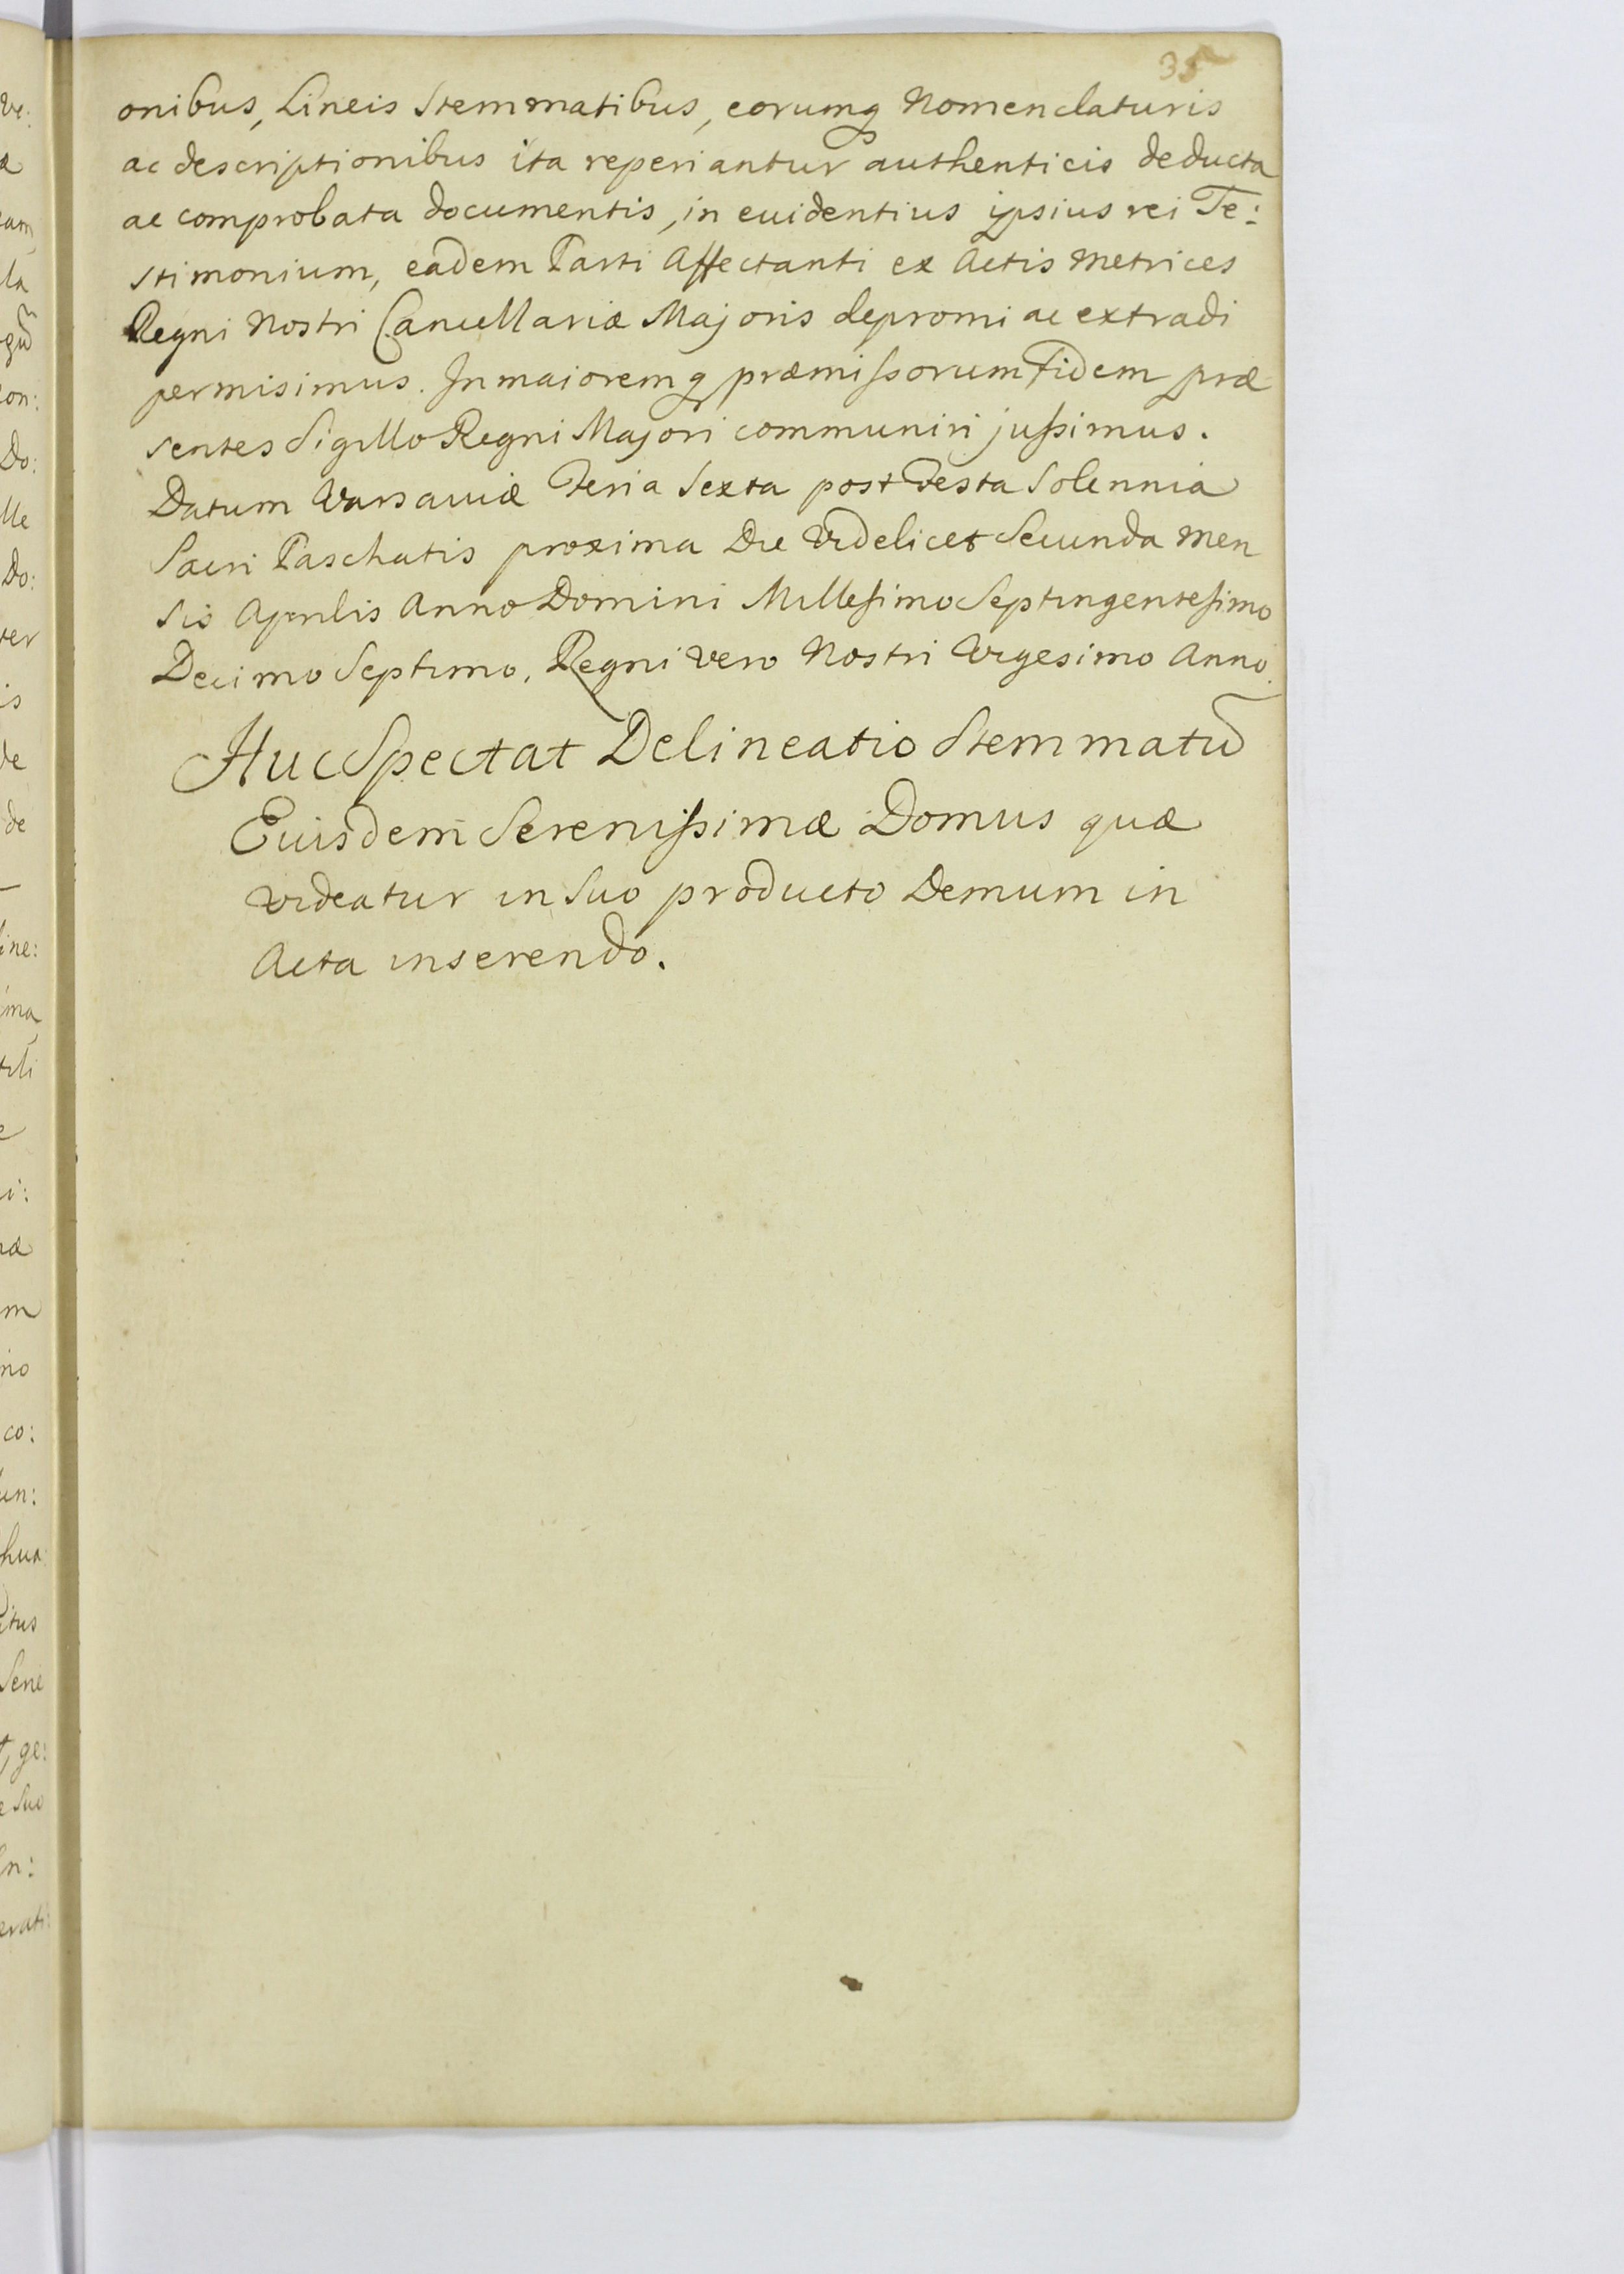 35
onibus, Lineis Stemmatibus, eorumq Nomenclaturis
ac descriptionibus ita reperiantur authenticis deducta
ac comprobata documentis, in euidentius ipsius rei Te:
stimonium, eadem Parti Affectanti ex Actis Metrices
Regni Nostri Cancellariæ Majoris depromi ac extradi
permisimus. In maioremq præmissorum Fidem præ
sentes Sigillo Regni Majori communiri jussimus.
Datum Varsaviæ Feria Sexta post Festa Solennia
Sacri Paschatis proxima Die Videlicet Secunda Men
sis Aprilis Anno Domini Millesimo Septingentesimo
Decimo Septimo, Regni vero Nostri Vigesimo Anno.
Huc Spectat Delineatio Stemmatū
Euisdem Serenissimæ Domus quæ
videatur in Suo producto Demum in
Acta inserendo.